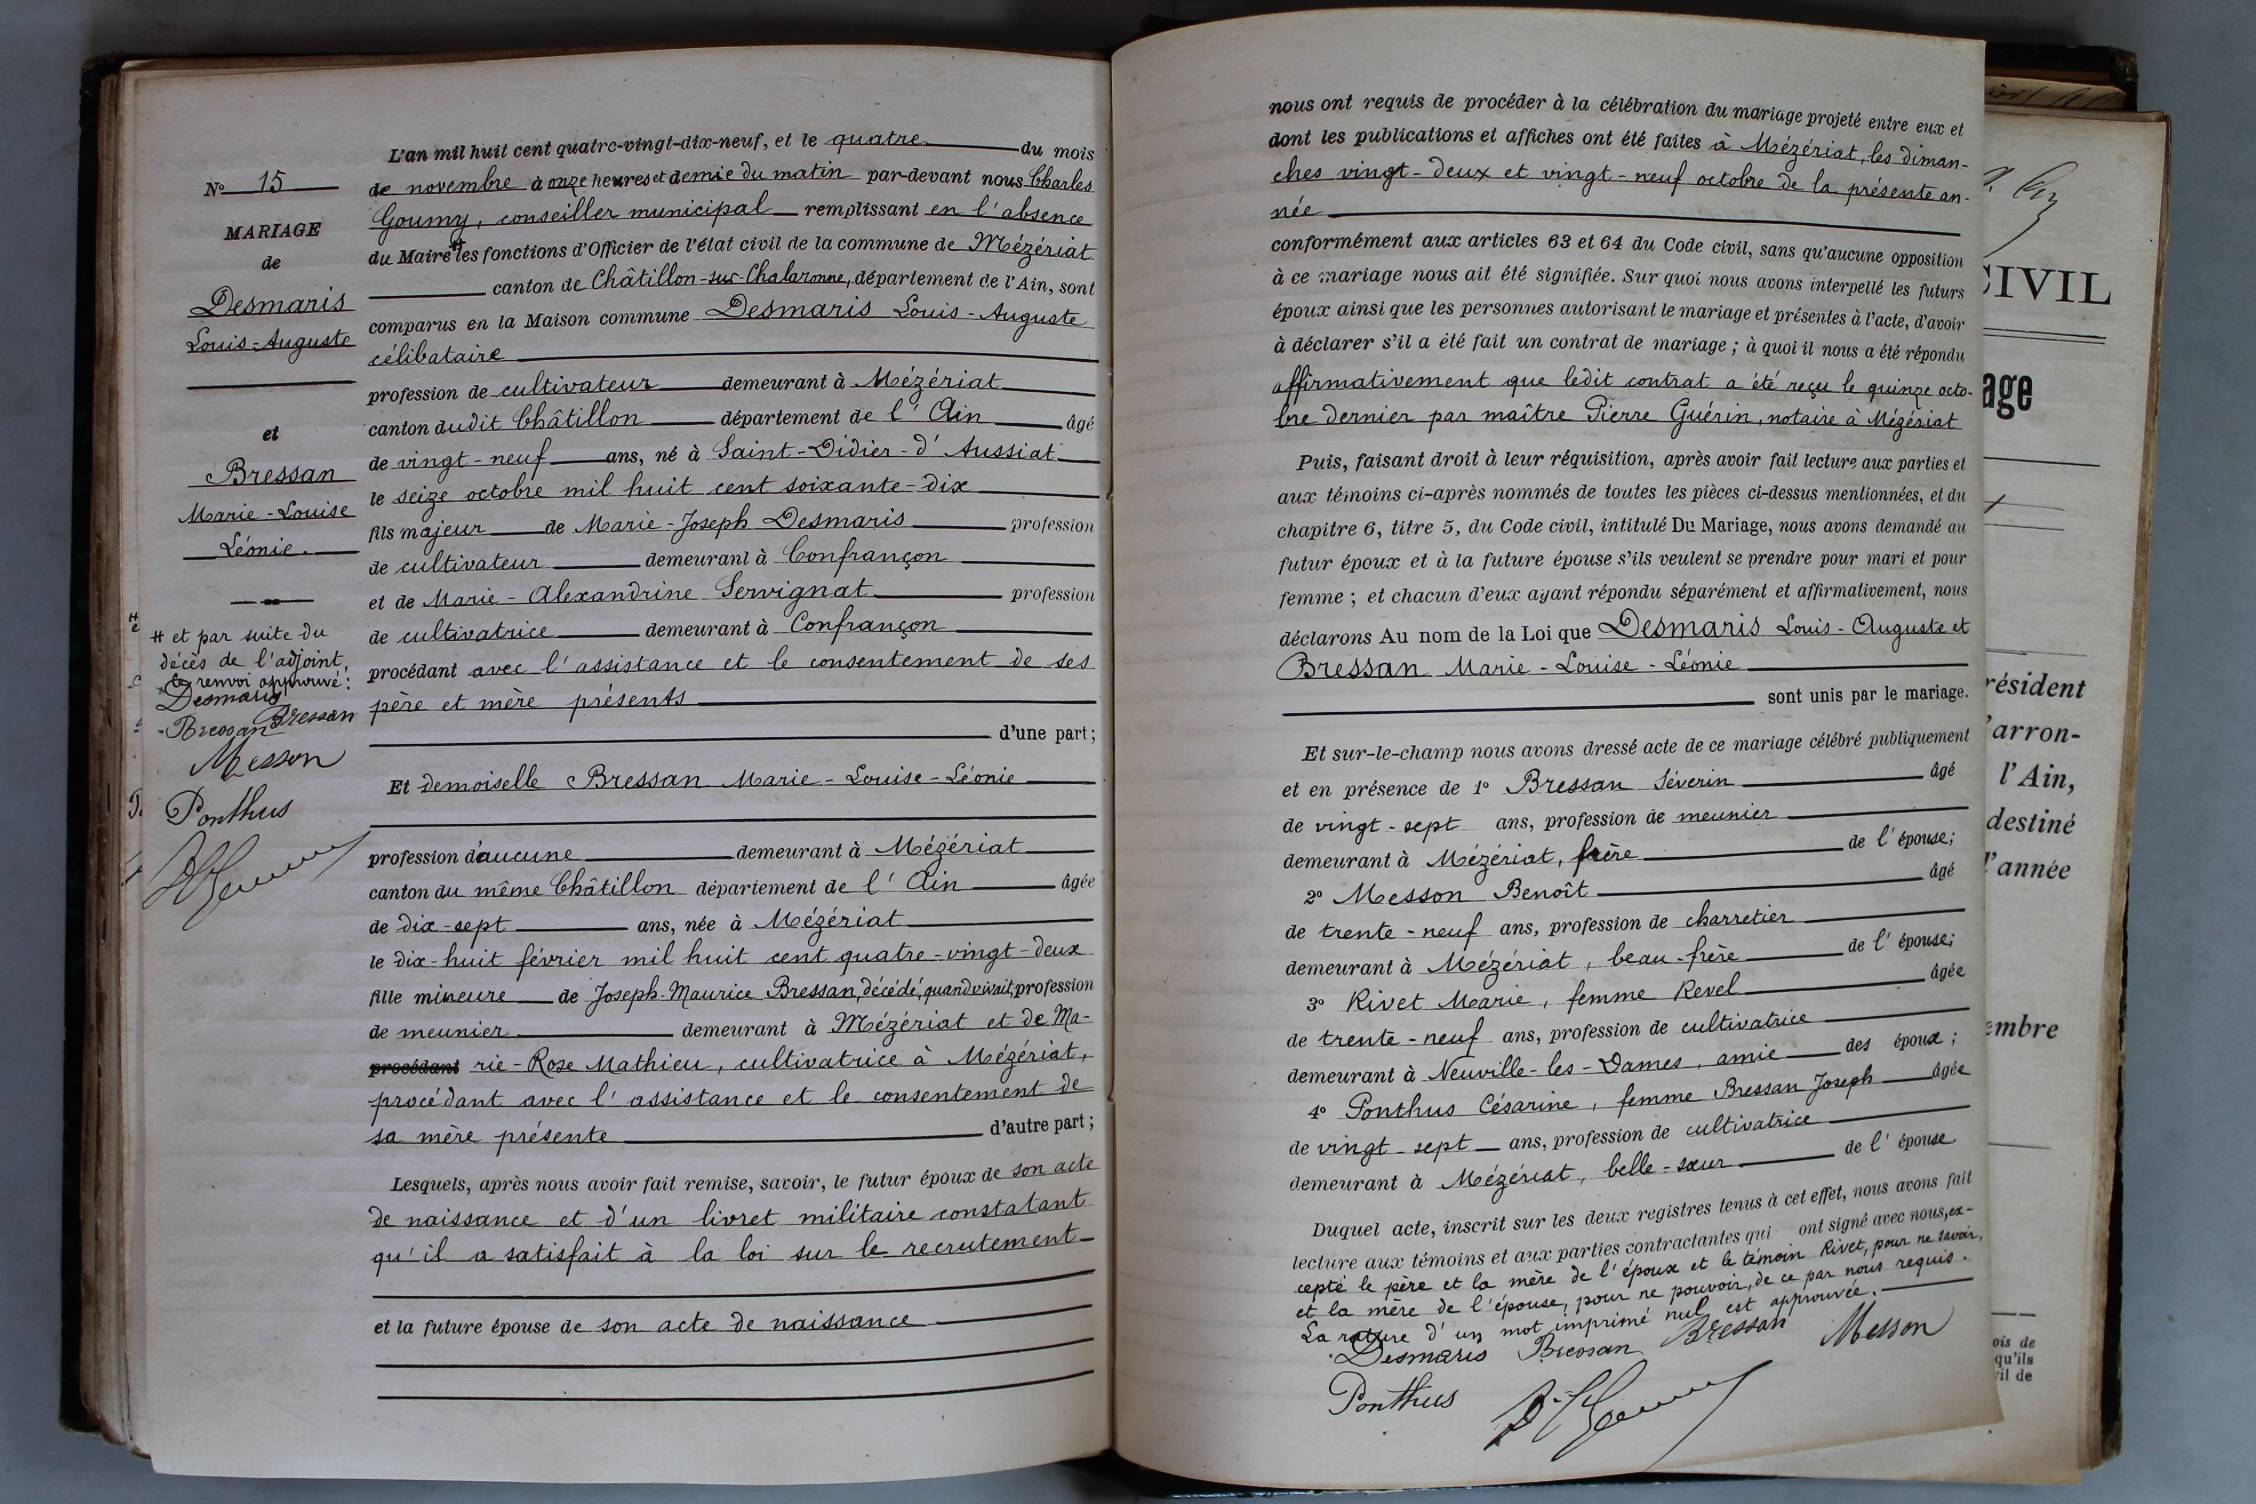 N° 15
MARIAGE
de
Desmaris
Louis-Auguste
et
Bressan
Marie-Louise
Léonie.
# et par suite du
décès de l'adjoint,
ce renvoi approuvé:
Desmaris
Bressan Bressan
Messon
Ponthus
L'an mil huit cent quatre-vingt-dix-neuf, et le quatre du mois
de novembre à onze heures et demie du matin par-devant nous Charles
Goumy, conseiller municipal remplissant en l'absence
du Maire # les fonctions d'Officier de l'état civil de la commune de Mézériat
canton de Châtillon-sur-Chalaronne, département de l'Ain, sont
comparus en la Maison commune Desmaris Louis-Auguste
célibataire
profession de cultivateur demeurant à Mézériat
canton dudit Châtillon département de l'Ain âgé
de vingt-neuf ans, né à Saint-Didier-d'Aussiat
le seize octobre mil huit cent soixante-dix
fils majeur de Marie-Joseph Desmaris profession
de cultivateur demeurant à Confrançon
et de Marie-Alexandrine Servignat profession
de cultivatrice demeurant à Confrançon
procédant avec l'assistance et le consentement de ses
père et mère présents
d'une part;
Et demoiselle Bressan Marie-Louise-Léonie
profession d'aucune demeurant à Mézériat
canton du même Châtillon département de l'Ain âgée
de dix-sept ans, née à Mézériat
le dix-huit février mil huit cent quatre-vingt-deux
fille mineure de Joseph-Maurice Bressan, décédé, quand vivait, profession
de meunier demeurant à Mézériat et de Ma-
procédant rie-Rose Mathieu, cultivatrice à Mézériat,
procédant avec l'assistance et le consentement de
sa mère présente d'autre part;
Lesquels, après nous avoir fait remise, savoir, le futur époux de son acte
de naissance et d'un livret militaire constatant
qu'il a satisfait à la loi sur le recrutement
et la future épouse de son acte de naissance
nous ont requis de procéder à la célébration du mariage projeté entre eux et
dont les publications et affiches ont été faites à Mézériat, les diman-
ches vingt-deux et vingt-neuf octobre de la présente an-
née
conformément aux articles 63 et 64 du Code civil, sans qu'aucune opposition
à ce mariage nous ait été signifiée. Sur quoi nous avons interpellé les futurs
époux ainsi que les personnes autorisant le mariage et présentes à l'acte, d'avoir
à déclarer s'il a été fait un contrat de mariage; à quoi il nous a été répondu
affirmativement que ledit contrat a été reçu le quinze octo-
bre dernier par maître Pierre Guérin, notaire à Mézériat
Puis, faisant droit à leur réquisition, après avoir fait lecture aux parties et
aux témoins ci-après nommés de toutes les pièces ci-dessus mentionnées, et du
chapitre 6, titre 5, du Code civil, intitulé Du Mariage, nous avons demandé au
futur époux et à la future épouse s'ils veulent se prendre pour mari et pour
femme; et chacun d'eux ayant répondu séparément et affirmativement, nous
déclarons Au nom de la Loi que Desmaris Louis-Auguste et
Bressan Marie-Louise-Léonie
sont unis par le mariage.
Et sur-le-champ nous avons dressé acte de ce mariage célébré publiquement
et en présence de 1° Bressan Séverin âgé
de vingt-sept ans, profession de meunier
demeurant à Mézériat, frère de l'épouse;
2° Messon Benoît âgé
de trente-neuf ans, profession de charretier
demeurant à Mézériat, beau-frère de l'épouse;
3° Rivet Marie, femme Revel âgée
de trente-neuf ans, profession de cultivatrice
demeurant à Neuville-les-Dames, amie des époux;
4° Ponthus Césarine, femme Bressan Joseph âgée
de vingt-sept ans, profession de cultivatrice
demeurant à Mézériat, belle-sœur de l'épouse
Duquel acte, inscrit sur les deux registres tenus à cet effet, nous avons fait
lecture aux témoins et aux parties contractantes qui ont signé avec nous, ex-
cepté le père et la mère de l'époux et le témoin Rivet, pour ne savoir,
et la mère de l'épouse, pour ne pouvoir, de ce par nous requis.
La rature d'un mot imprimé nul est approuvée.
Desmaris Bressan Bressan Messon
Ponthus
CIVIL
age
résident
'arron-
l'Ain,
destiné
l'année
embre
ois de
qu'ils
vil de